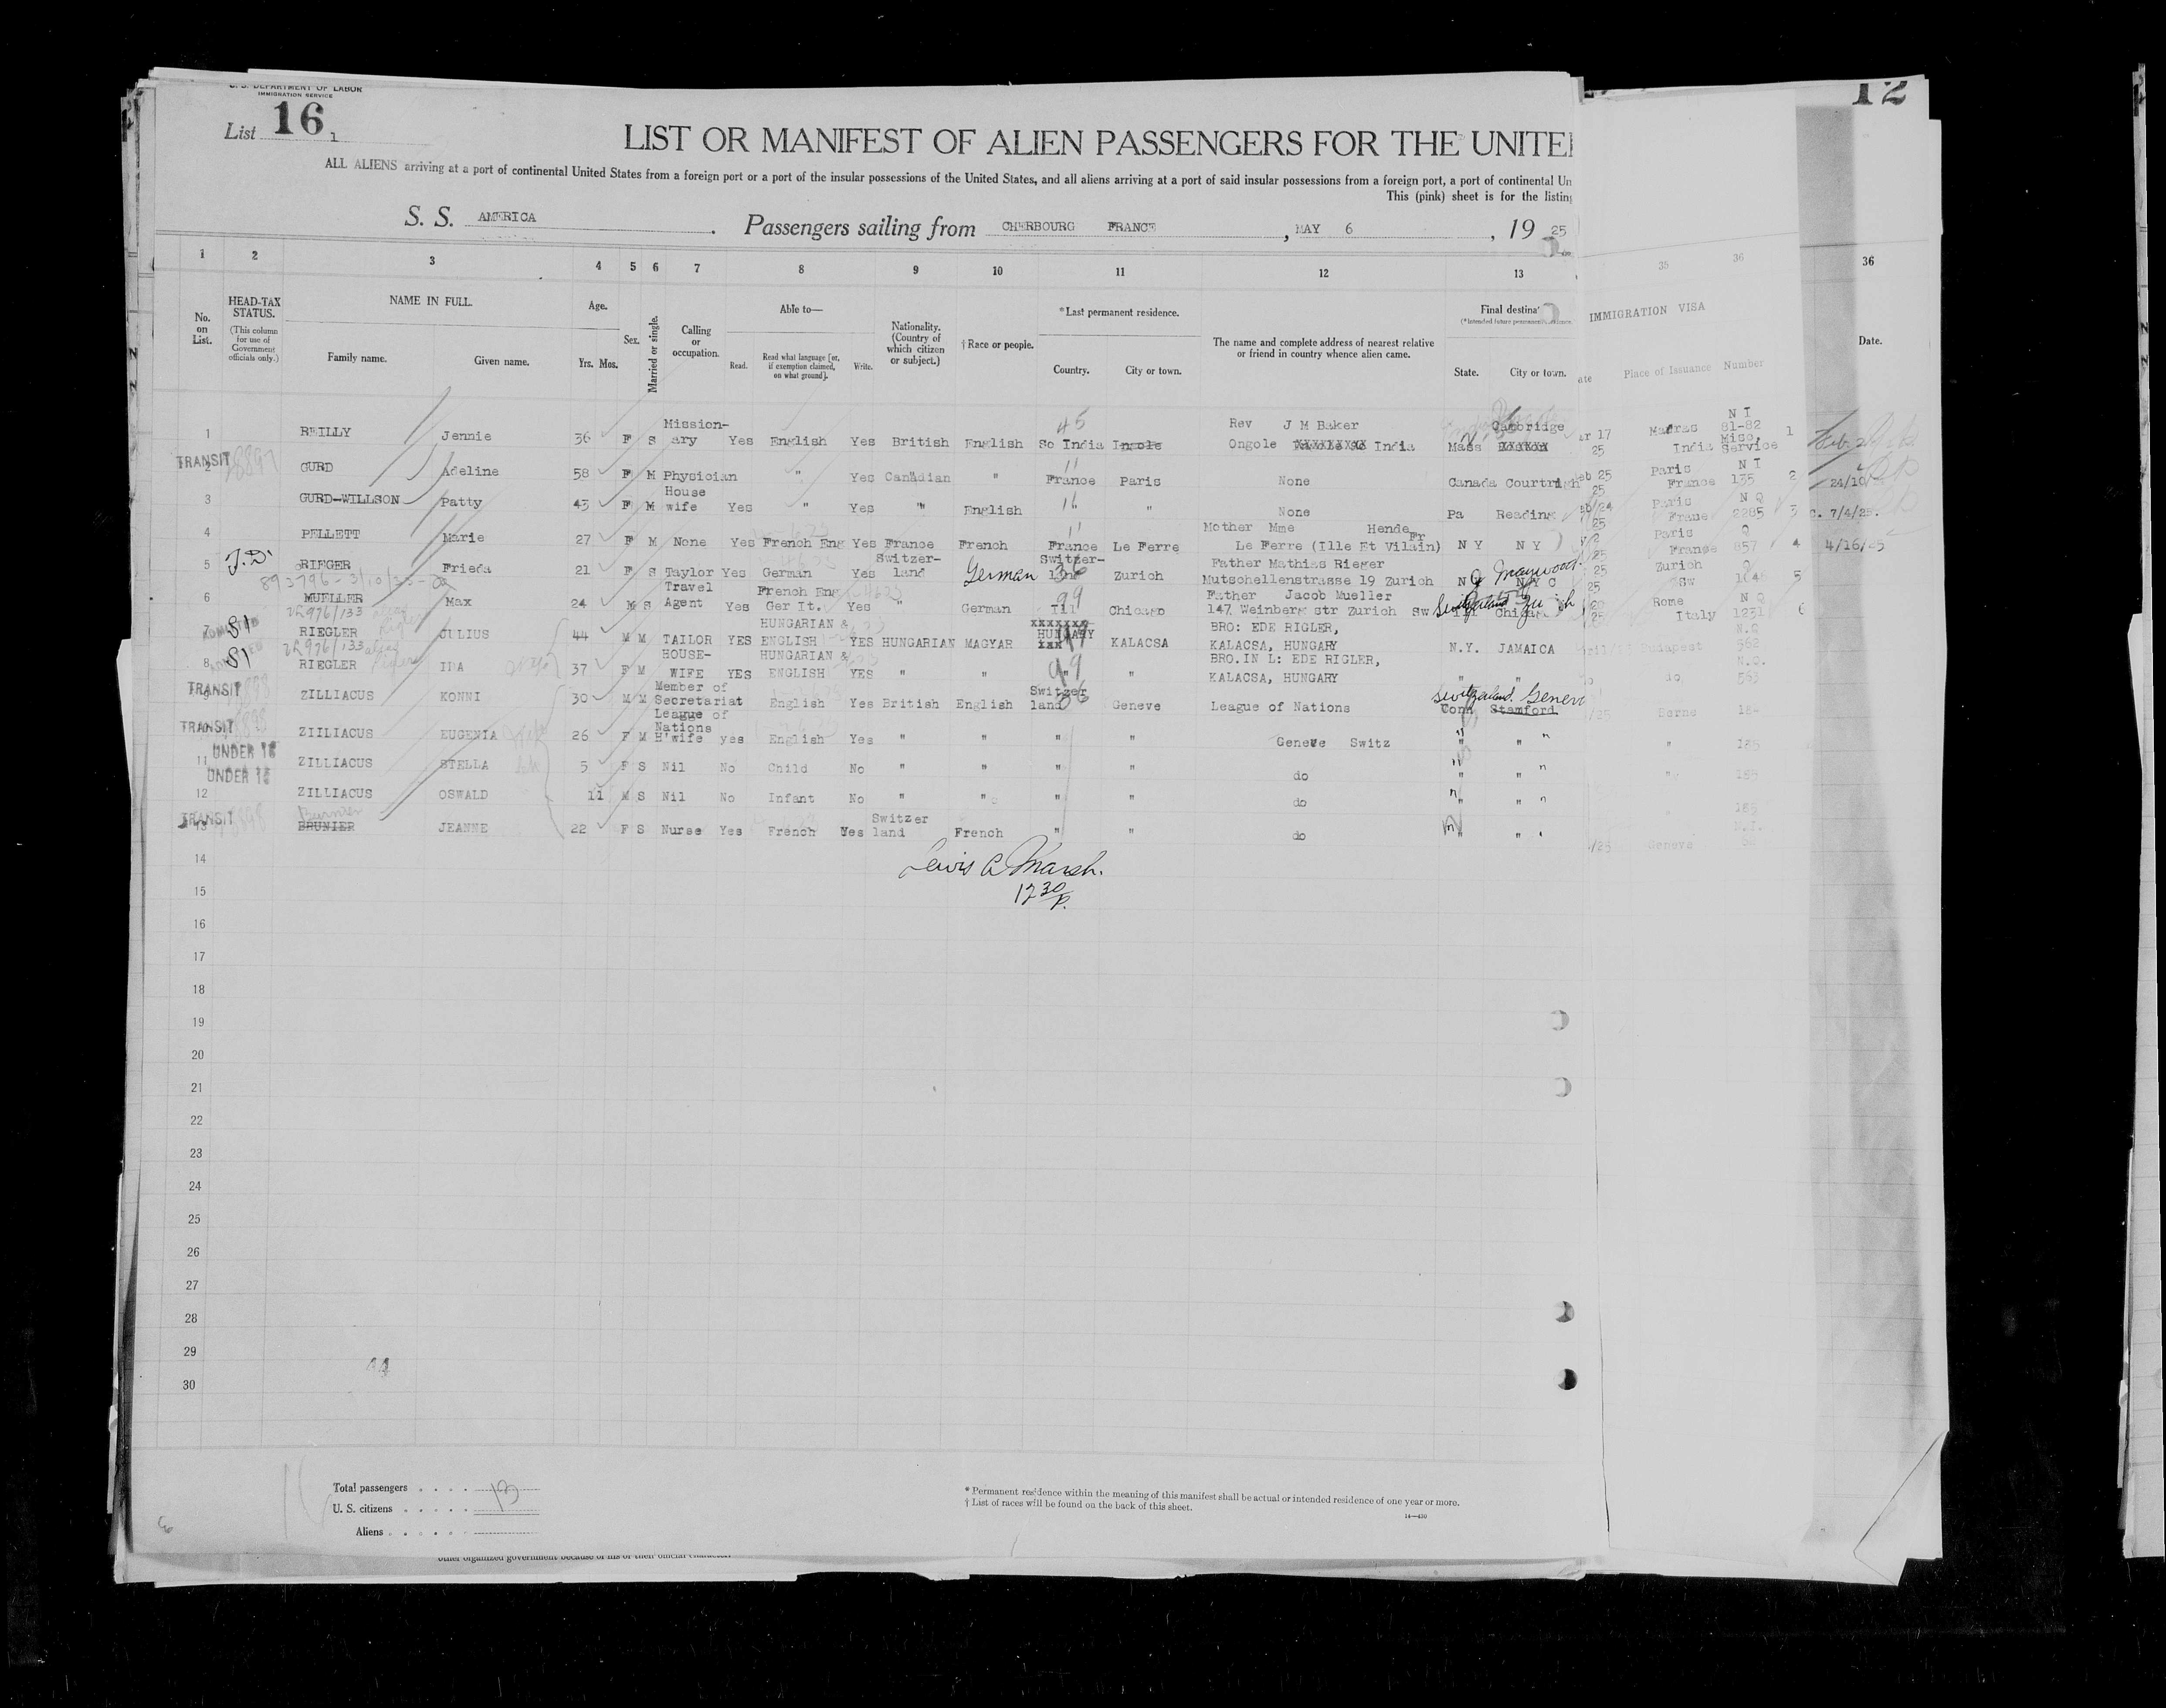 U. S. DEPARTMENT OF LABOR
IMMIGRATION SERVICE
12
List 16 1
LIST OR MANIFEST OF ALIEN PASSENGERS FOR THE UNITE
ALL ALIENS arriving at a port of continental United States from a foreign port or a port of the insular possessions of the United States, and all aliens arriving at a port of said insular possessions from a foreign port, a port of continental Un
This (pink) sheet is for the listing
S. S. AMERICA . Passengers sailing from CHERBOURG FRANCE , MAY 6 , 19 25
1 2 3 4 5 6 7 8 9 10 11 12 13 35 36 36
No. on List. HEAD-TAX STATUS. (This column for use of Government officials only.) NAME IN FULL. Family name. Given name. Age. Yrs. Mos. Sex. Married or single. Calling or occupation. Able to— Read. Read what language [or, if exemption claimed, on what ground]. Write. Nationality. (Country of which citizen or subject.) † Race or people. *Last permanent residence. Country. City or town. The name and complete address of nearest relative or friend in country whence alien came. Final destina State. City or town. IMMIGRATION VISA Place of Issuance Number Date.
1 REILLY Jennie 36 F S Mission-ary Yes English Yes British English 45 So India Ingole Rev J M Baker Ongole India Mass Cambridge Madras India N I 81-82 Misc. Service 1
TRANSIT 2 GURD Adeline 58 F M Physician " Yes Canadian " 11 France Paris None Canada Courtright Paris France N I 135 2 24/10
3 GURD-WILLSON Patty 43 F M House wife Yes " Yes " English 11 " None Pa Reading Paris Frane N Q 2285 3 7/4/25.
4 PELLETT Marie 27 F M None Yes French Eng Yes France French 11 France Le Ferre Mother Mme Hende Le Ferre (Ille Et Vilain) Fr N Y N Y Paris France Q 857 4 4/16/25
5 T.D. RIEGER Frieda 21 F S Taylor Yes German Yes Switzer-land German Switzer-land 36 Zurich Father Mathias Rieger Mutschellenstrasse 19 Zurich N Y C Maywood Zurich Sw Q 5
893796-3/10/33-
6 MUELLER Max 24 M S Travel Agent Yes French Eng Ger It. Yes " German 99 Chicago Father Jacob Mueller 147 Weinberg str Zurich Sw Switzerland Rome Italy N Q 1231 6
2R976/133 alias Rigler
7 81 RIEGLER JULIUS 44 M M TAILOR YES HUNGARIAN & ENGLISH YES HUNGARIAN MAGYAR HUNGARY KALACSA BRO: EDE RIGLER, KALACSA, HUNGARY N.Y. JAMAICA Budapest N.Q 562
2R976/133 alias
8 81 RIEGLER 37 F M HOUSE-WIFE YES HUNGARIAN & ENGLISH YES " " " " BRO.IN L: EDE RIGLER, KALACSA, HUNGARY " " do N.Q. 563
TRANSIT 9 ZILLIACUS KONNI 30 M M Member of Secretariat League of Nations English Yes British English Switzer land 36 Geneve League of Nations Conn Stamford Switzerland Berne
TRANSIT ZIILIACUS EUGENIA 26 F M H'wife yes English Yes " " " " Geneve Switz " " " " 185
UNDER 16 11 ZILLIACUS STELLA 5 F S Nil No Child No " " " " do " " " " 185
UNDER 16 12 ZILLIACUS OSWALD 11 M S Nil No Infant No " " " " do " " " 185
TRANSIT 13 BRUNIER JEANNE 22 F S Nurse Yes French Yes Switzer land French " " do " " Geneva
14
Lewis A Marsh.
15
12 30 P.
16
17
18
19
20
21
22
23
24
25
26
27
28
29
44
30
Total passengers . . . . 13
U. S. citizens . . . . .
Aliens . . . . . .
* Permanent residence within the meaning of this manifest shall be actual or intended residence of one year or more.
† List of races will be found on the back of this sheet.
14—430
other organized government because of his or their official character.